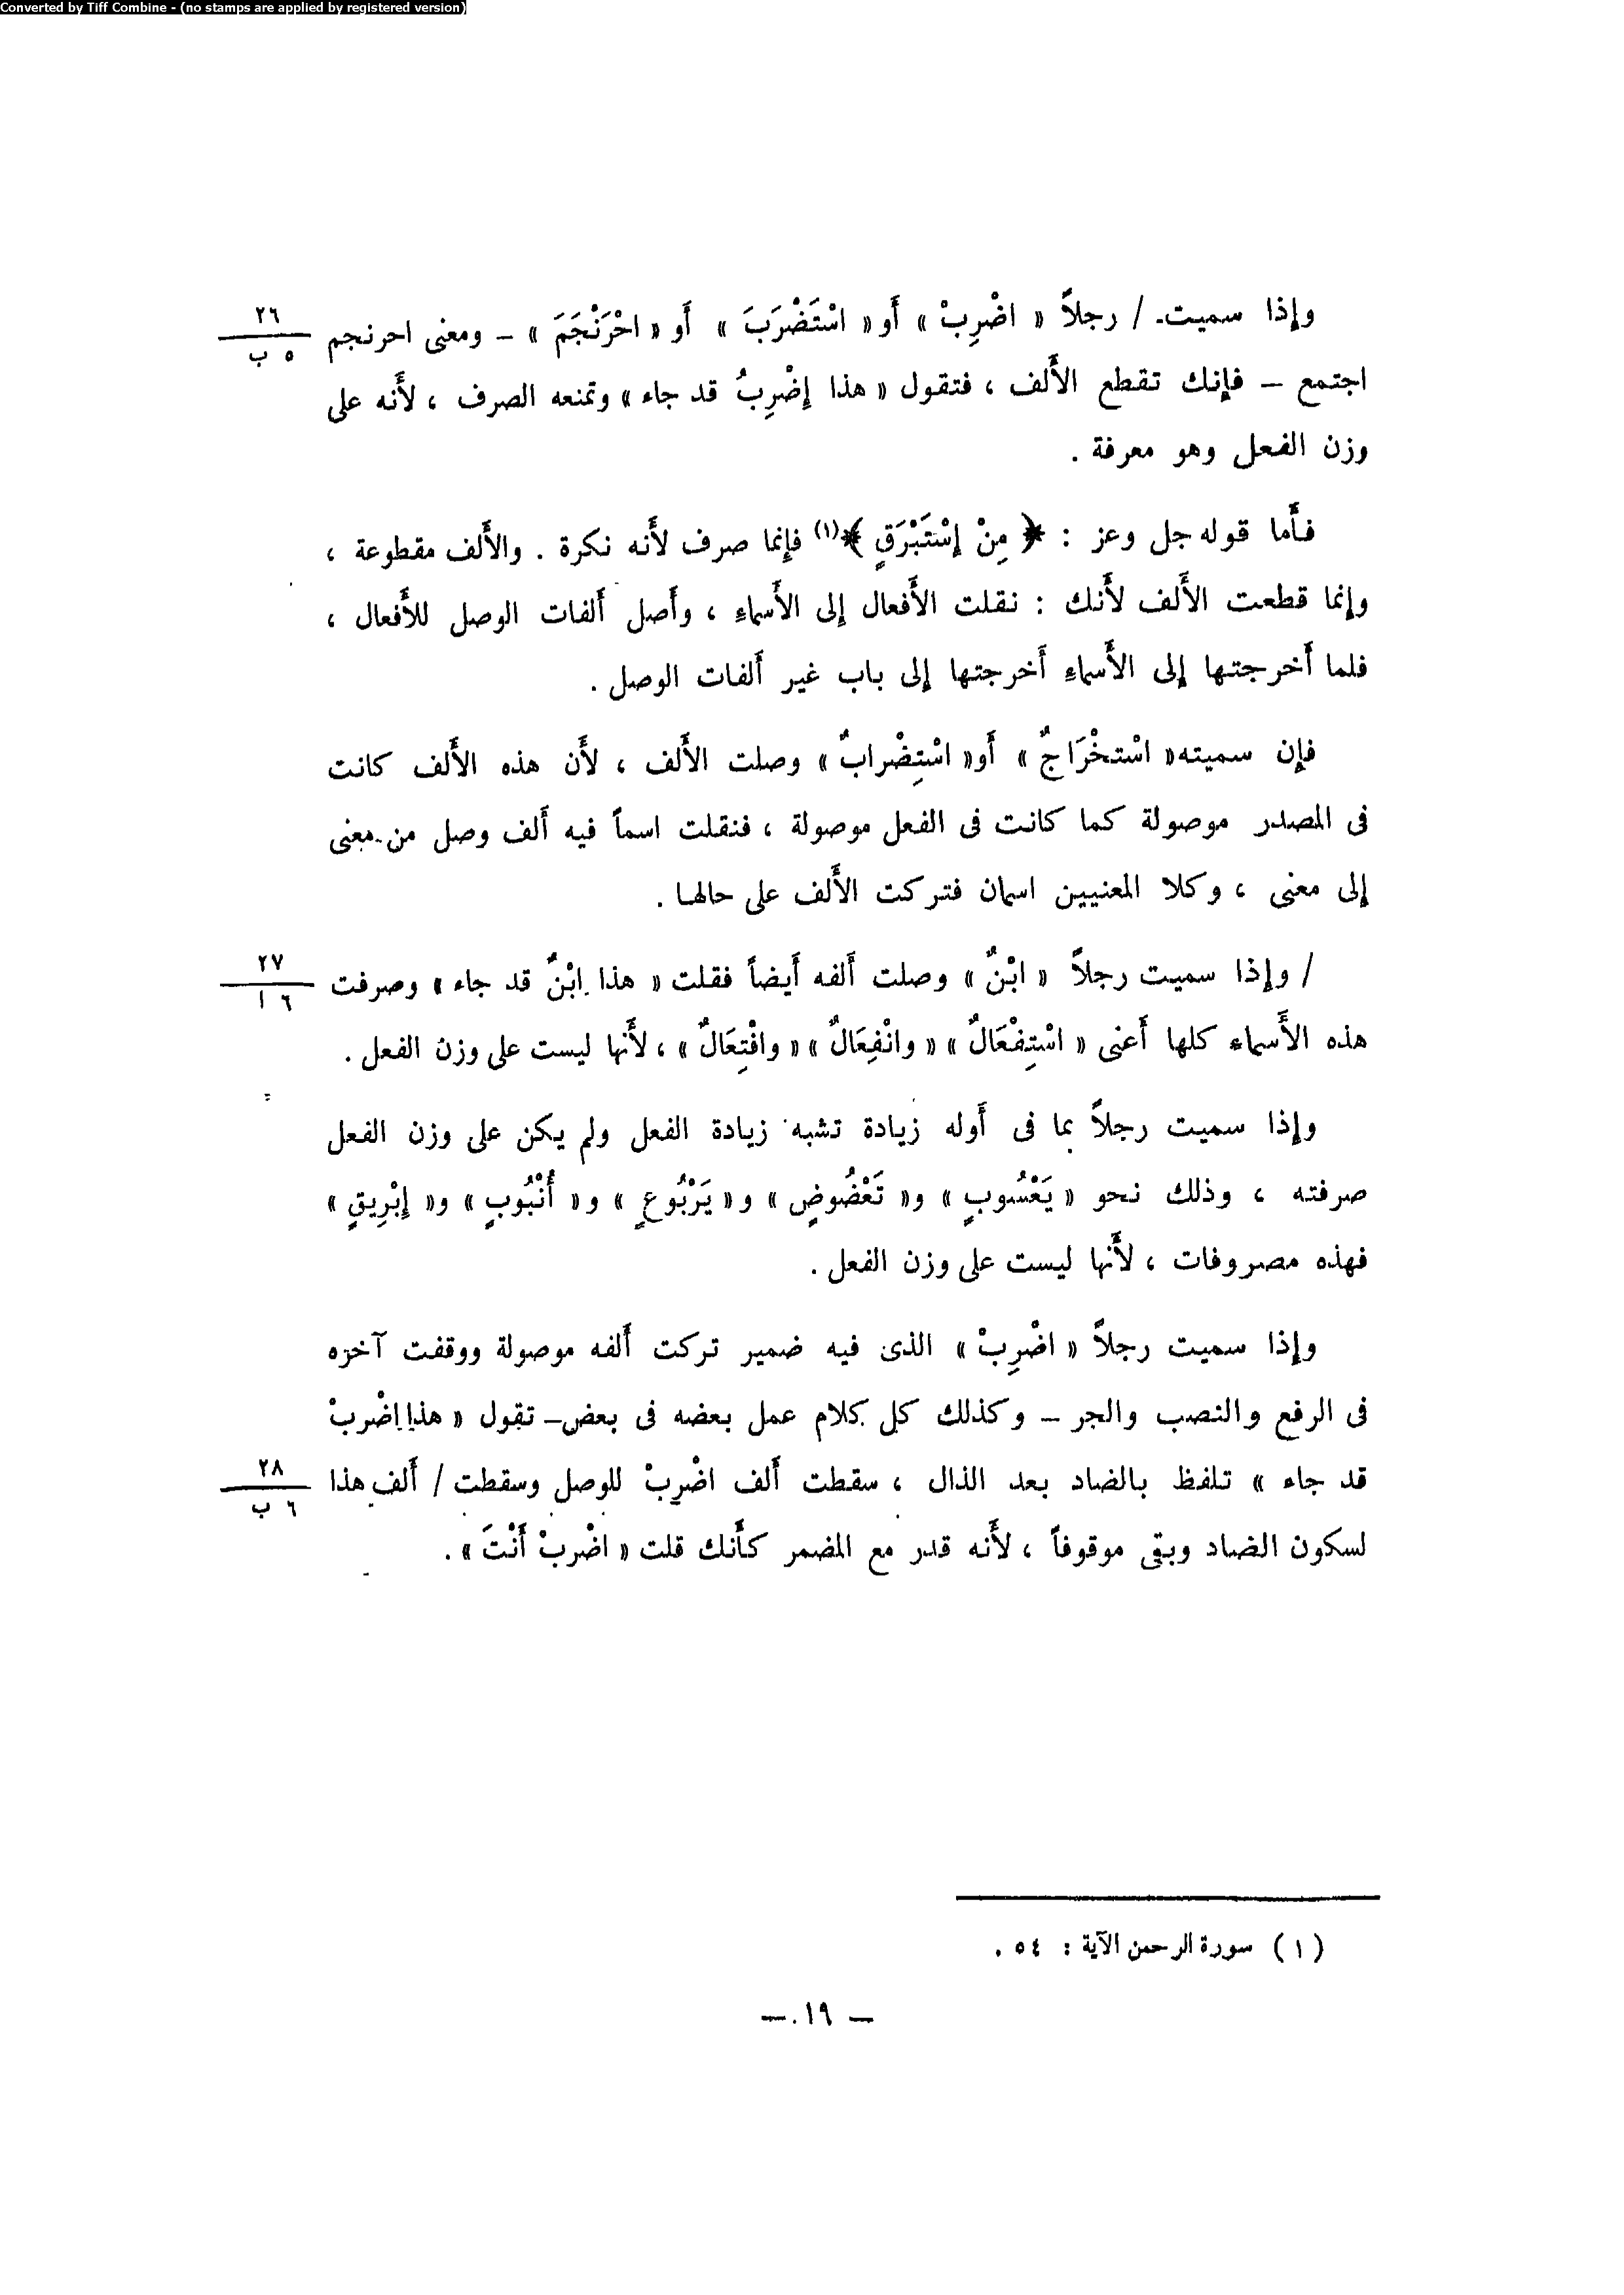 Converted by Tiff Combine - (no stamps are applied by registered version)
وإذا سميت / رجلاً « اضْرِبْ » أَو « اسْتَضْرَبَ » أَو « احْرَنْجَمَ » – ومعنى احرنجم
٢٦
٥ ب
اجتمع – فإِنك تقطع الأَلف ، فتقول « هذا إِضْرِبُ قد جاء » وتمنعه الصرف ، لأَنه على
وزن الفعل وهو معرفة .
فأَما قوله جل وعز : ﴿ مِنْ إِسْتَبْرَقٍ ﴾(١) فإِنما صرف لأَنه نكرة . والأَلف مقطوعة ،
وإِنما قطعت الأَلف لأَنك : نقلت الأَفعال إلى الأَسماءِ ، وأَصل أَلفات الوصل للأَفعال ،
فلما أَخرجتها إلى الأَسماءِ أَخرجتها إلى باب غير أَلفات الوصل .
فإن سميته « اسْتخْرَاجٌ » أَو « اسْتِضْرابٌ » وصلت الأَلف ، لأَن هذه الأَلف كانت
فى المصدر موصولة كما كانت فى الفعل موصولة ، فنقلت اسماً فيه أَلف وصل من معنى
إلى معنى ، وكلا المعنيين اسمان فتركت الأَلف على حالها .
/ وإذا سميت رجلاً « ابْنٌ » وصلت أَلفه أَيضاً فقلت « هذا ابْنٌ قد جاء » وصرفت
٢٧
٦ ا
هذه الأَسماء كلها أَعنى « اسْتِفْعَالٌ » « وانْفِعَالٌ » « وافْتِعَالٌ » ، لأَنها ليست على وزن الفعل .
وإذا سميت رجلاً بما فى أَوله زيادة تشبه زيادة الفعل ولم يكن على وزن الفعل
صرفته ، وذلك نحو « يَعْسُوبٍ » و« تَعْضُوضٍ » و « يَرْبُوعٍ » و « أُنْبُوبٍ » و« إِبْرِيقٍ »
فهذه مصروفات ، لأَنها ليست على وزن الفعل .
وإذا سميت رجلاً « اضْرِبْ » الذى فيه ضمير تركت أَلفه موصولة ووقفت آخره
فى الرفع والنصب والجر – وكذلك كل كلام عمل بعضه فى بعض – تقول « هذا اضْربْ
قد جاء » تلفظ بالضاد بعد الذال ، سقطت أَلف اضْربْ للوصل وسقطت / أَلف هذا
٢٨
٦ ب
لسكون الضاد وبقى موقوفاً ، لأَنه قدر مع المضمر كأَنك قلت « اضْربْ أَنْتَ » .
( ١ ) سورة الرحمن الآية : ٥٤ .
— ١٩ —